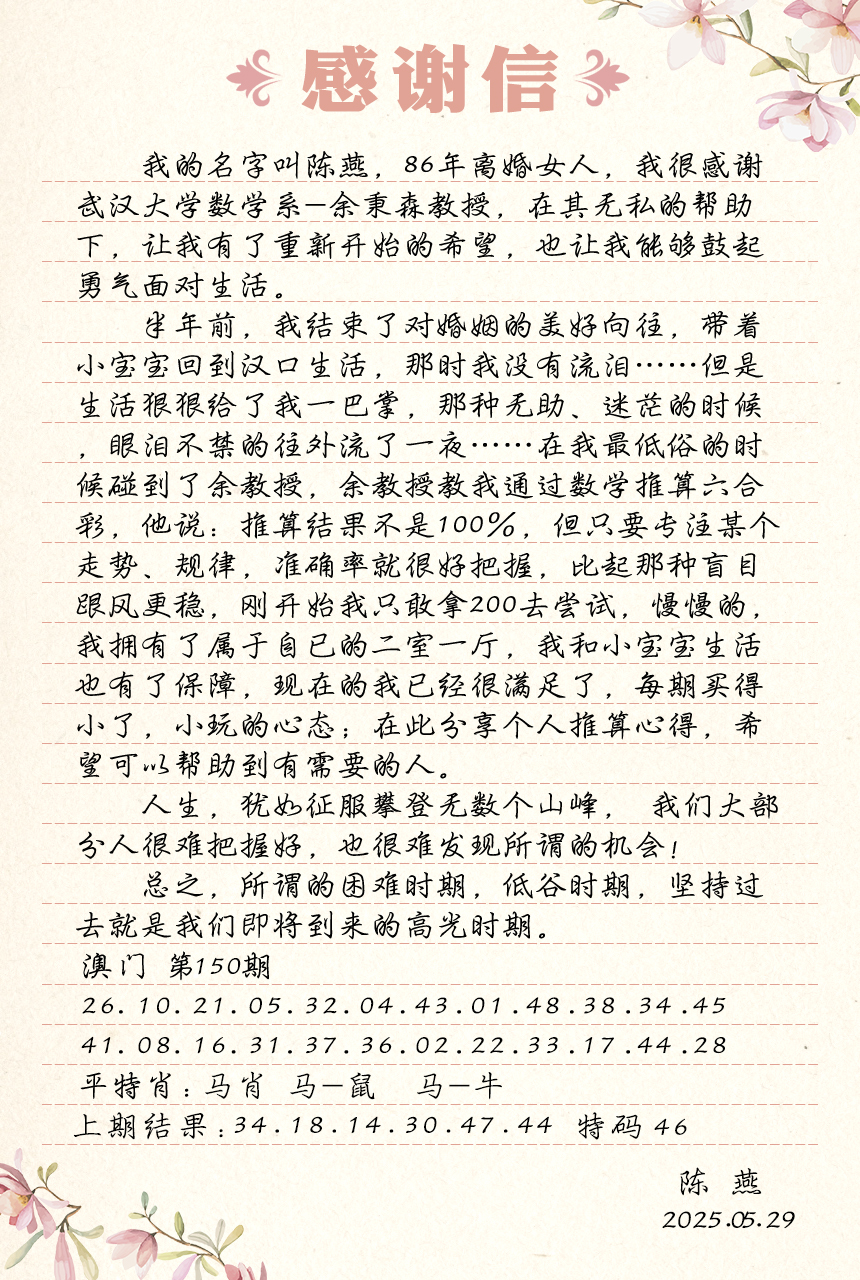 感谢信
我的名字叫陈燕，86年离婚女人，我很感谢
武汉大学数学系—余秉森教授，在其无私的帮助
下，让我有了重新开始的希望，也让我能够鼓起
勇气面对生活。
半年前，我结束了对婚姻的美好向往，带着
小宝宝回到汉口生活，那时我没有流泪……但是
生活狠狠给了我一巴掌，那种无助、迷茫的时候
，眼泪不禁的往外流了一夜……在我最低俗的时
候碰到了余教授，余教授教我通过数学推算六合
彩，他说：推算结果不是100%，但只要专注某个
走势、规律，准确率就很好把握，比起那种盲目
跟风更稳，刚开始我只敢拿200去尝试，慢慢的，
我拥有了属于自已的二室一厅，我和小宝宝生活
也有了保障，现在的我已经很满足了，每期买得
小了，小玩的心态；在此分享个人推算心得，希
望可以帮助到有需要的人。
人生，犹如征服攀登无数个山峰， 我们大部
分人很难把握好，也很难发现所谓的机会！
总之，所谓的困难时期，低谷时期，坚持过
去就是我们即将到来的高光时期。
澳门 第150期
26.10.21.05.32.04.43.01.48.38.34.45
41.08.16.31.37.36.02.22.33.17.44.28
平特肖：马肖 马—鼠 马—牛
上期结果：34.18.14.30.47.44 特码46
陈 燕
2025.05.29